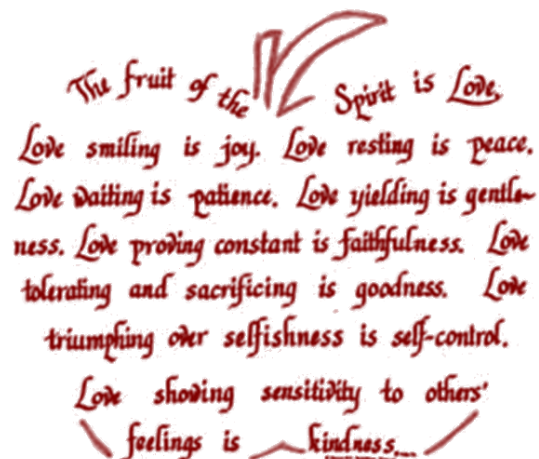 The fruit of the Spirit is Love,
Love smiling is joy. Love resting is peace.
Love waiting is patience. Love yielding is gentle-
ness. Love proving constant is faithfulness. Love
tolerating and sacrificing is goodness. Love
triumphing over selfishness is self-control.
Love showing sensitivity to others'
feelings is kindness...